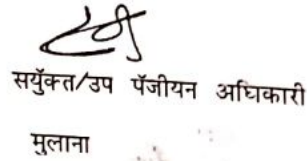 सयुँक्त/उप पॅजीयन अधिकारी
मुलाना